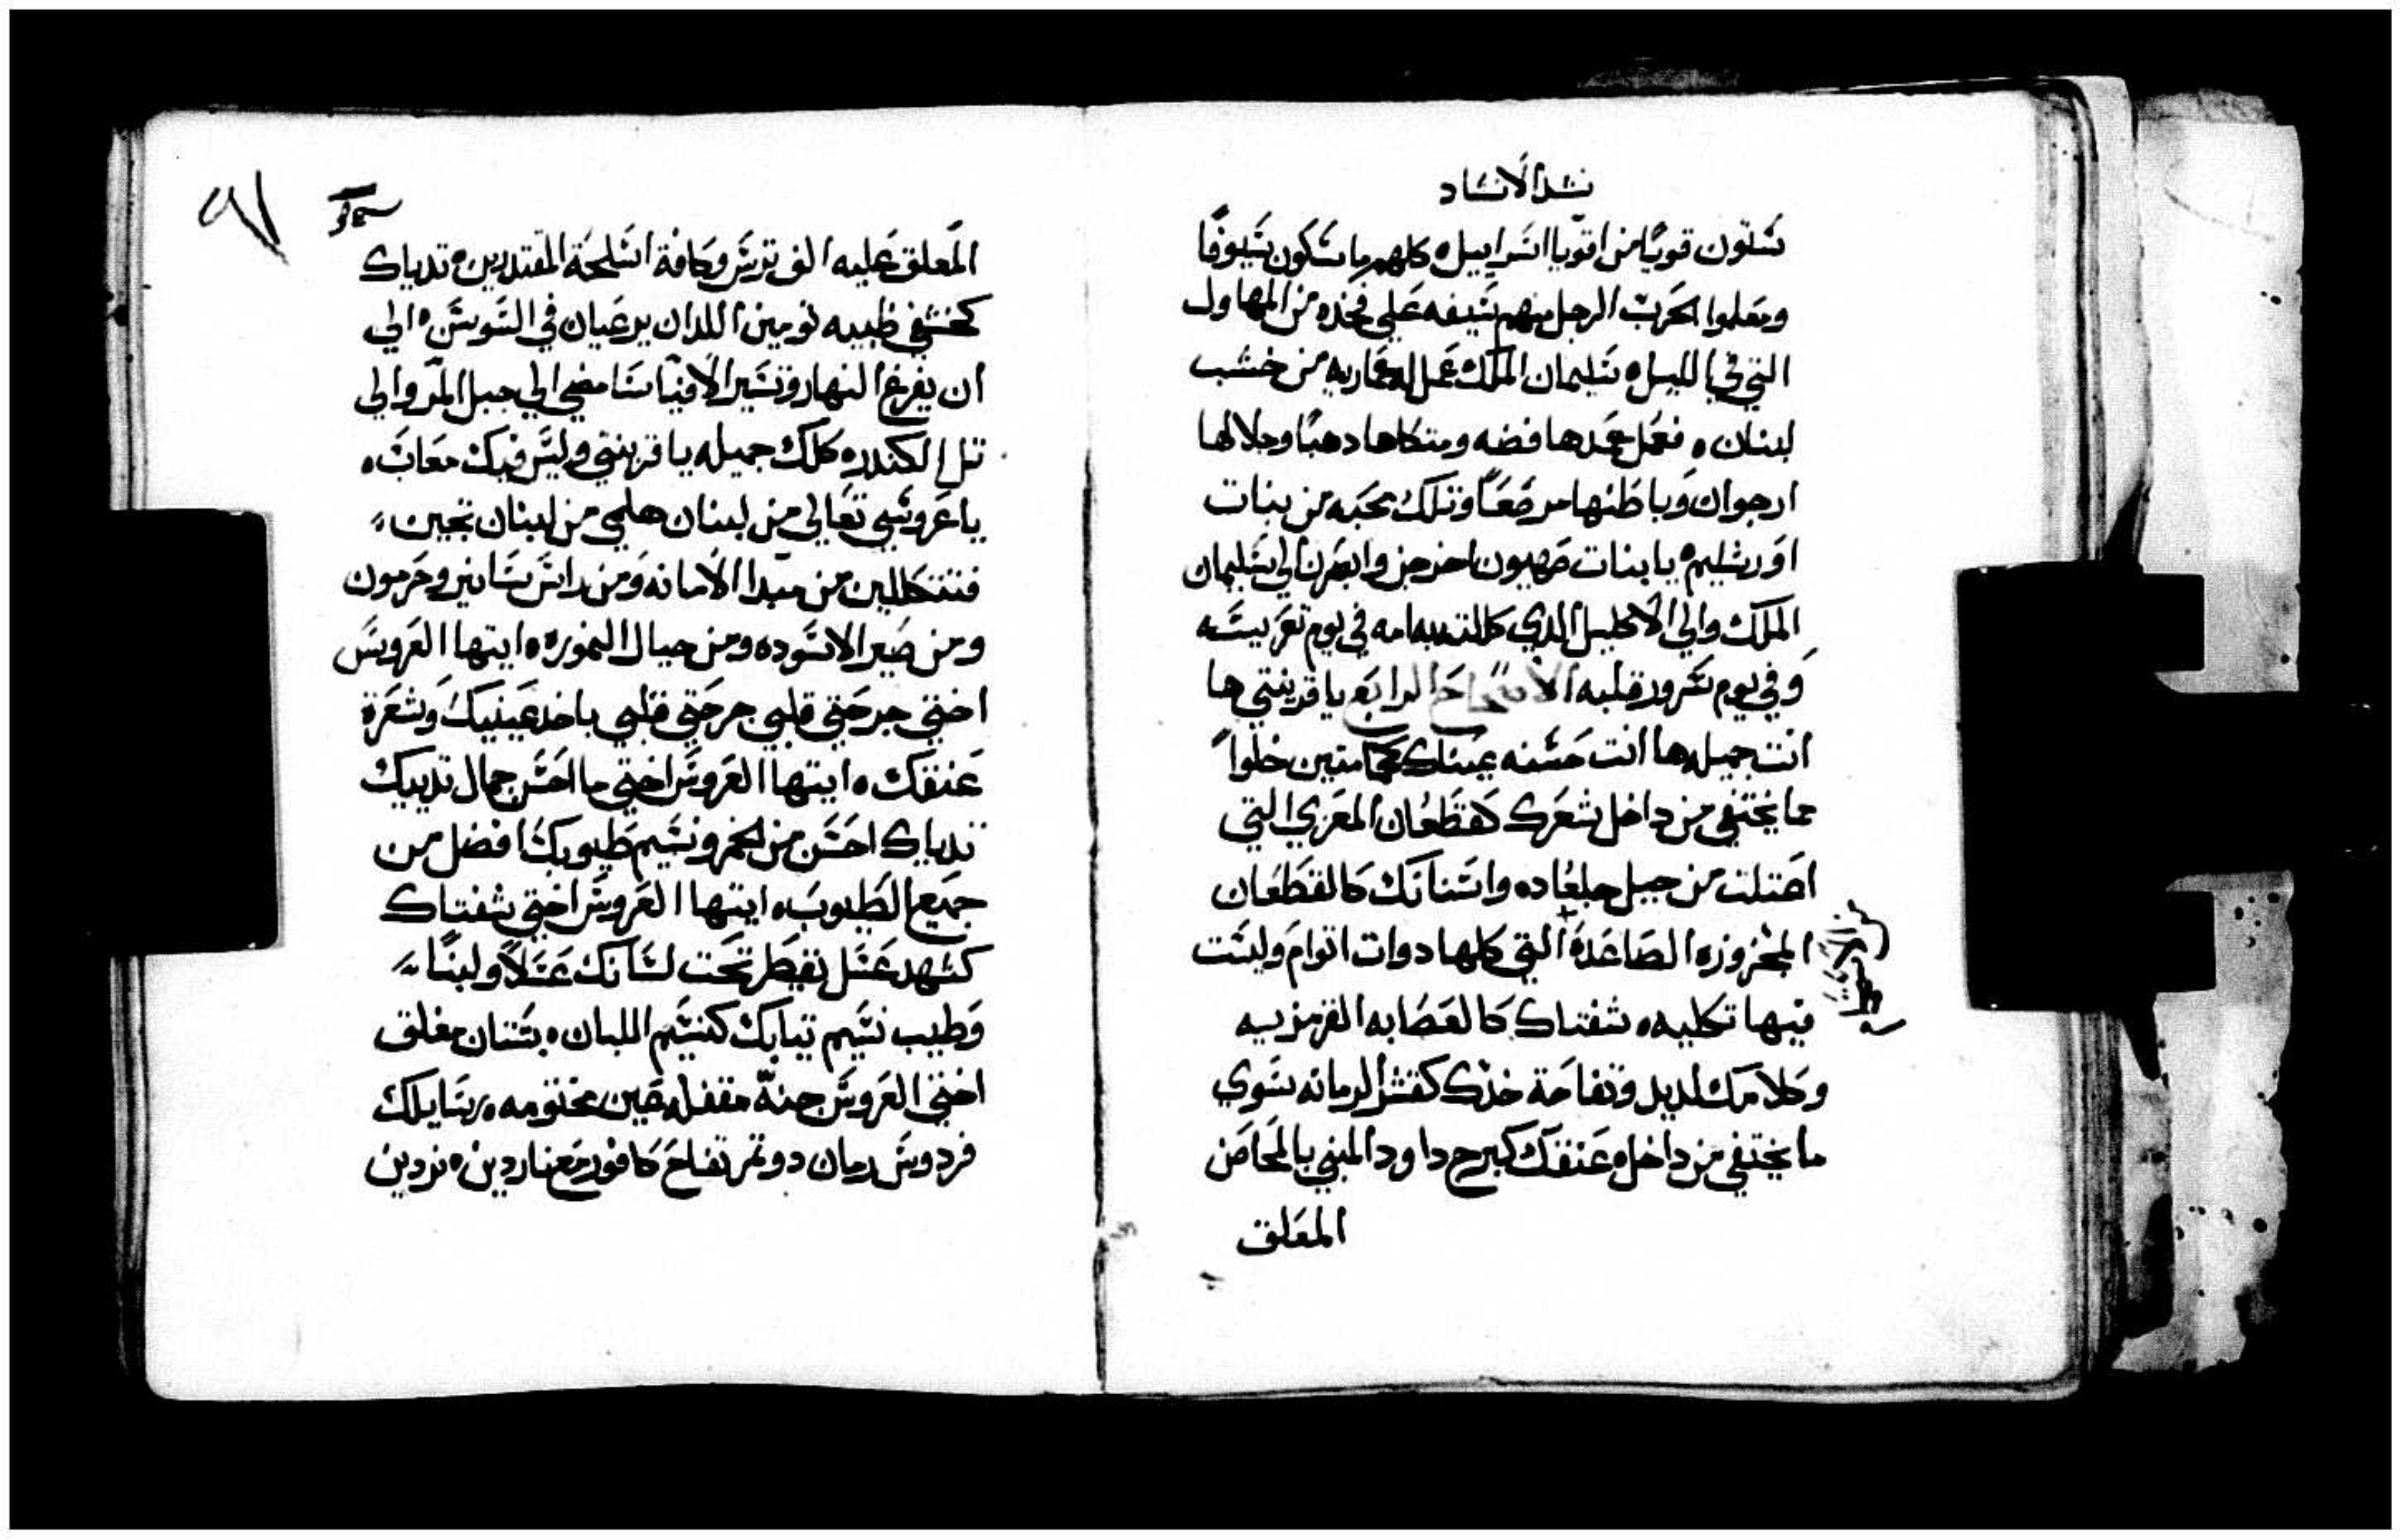 نشد الانشاد
ستون قويًا من اقويا اسراييل ه كلهم ماسكون سيوفًا
ومعلموا الحرب الرجل منهم سيفه علي فخذه من المهاول
التي في الليل ه سليمان الملك عمل له عماريه من خشب
لبنان ه فعمل عمدها فضه ومتكاها دهبًا وجلالها
ارجوان وباطنها مرصعًا وتلك محبه من بنات
اورشليم ه يا بنات صهيون اخرجن وابصرن الي سليمان
الملك والي الاكليل الدي كللته به امه في يوم تعريسه
وفي يوم سرور قلبه الاصحاح الرابع يا قرينتي ها
انت جميله ها انت حسنه عيناك كحمامتين خلوا
مما يختفي من داخل شعرك كقطعان المعزي التي
اعتلت من جبل جلعاده واسنانك كالقطعان
المجزوزه الصاعدة التي كلها دوات اتوام وليست
فيها تكليه ه شفتاك كالعصابه القرمزيه
وكلامك لديد وتفاحة خدك كقشر الرمانه سوي
ما يختفي من داخل ه عنقك كبرج داود المبني بالمحاصن
المعلق
٩٧
المعلق عليه الف ترس وكافة اسلحة المقتدرين ه تدياك
كخشفي ظبيه تومين اللدان يرعيان في السوسن ه الي
ان يفرغ النهار وتسير الافيا سامضي الي جبل المر والي
تل الكندر ه كلك جميله يا قرينتي وليس فيك معاب ه
يا عروسي تعالي من لبنان هلمي من لبنان تجين
فتتكللين من مبدا الامانه ومن راس سانير وحرمون
ومن صير الاسوده ومن جبال النموره ه ايتها العروس
اختي جرحتي قلبي جرحتي قلبي باحد عينيك وشعرة
عنقك ه ايتها العروس اختي ما احسن جمال تدييك
تدياك احسن من الخمر ونسيم طيوبك افضل من
جميع الطيوب ه ايتها العروس اختي شفتاك
كشهد عسل تقطر تحت لسانك عسلاً ولبنًا
وطيب نسيم تيابك كنسيم اللبان ه بستان مغلق
اختي العروس جنة مقفله عين مختومه ه رسايلك
فردوس رمان دو تمر تفاح كافور مع ناردين ه نردين